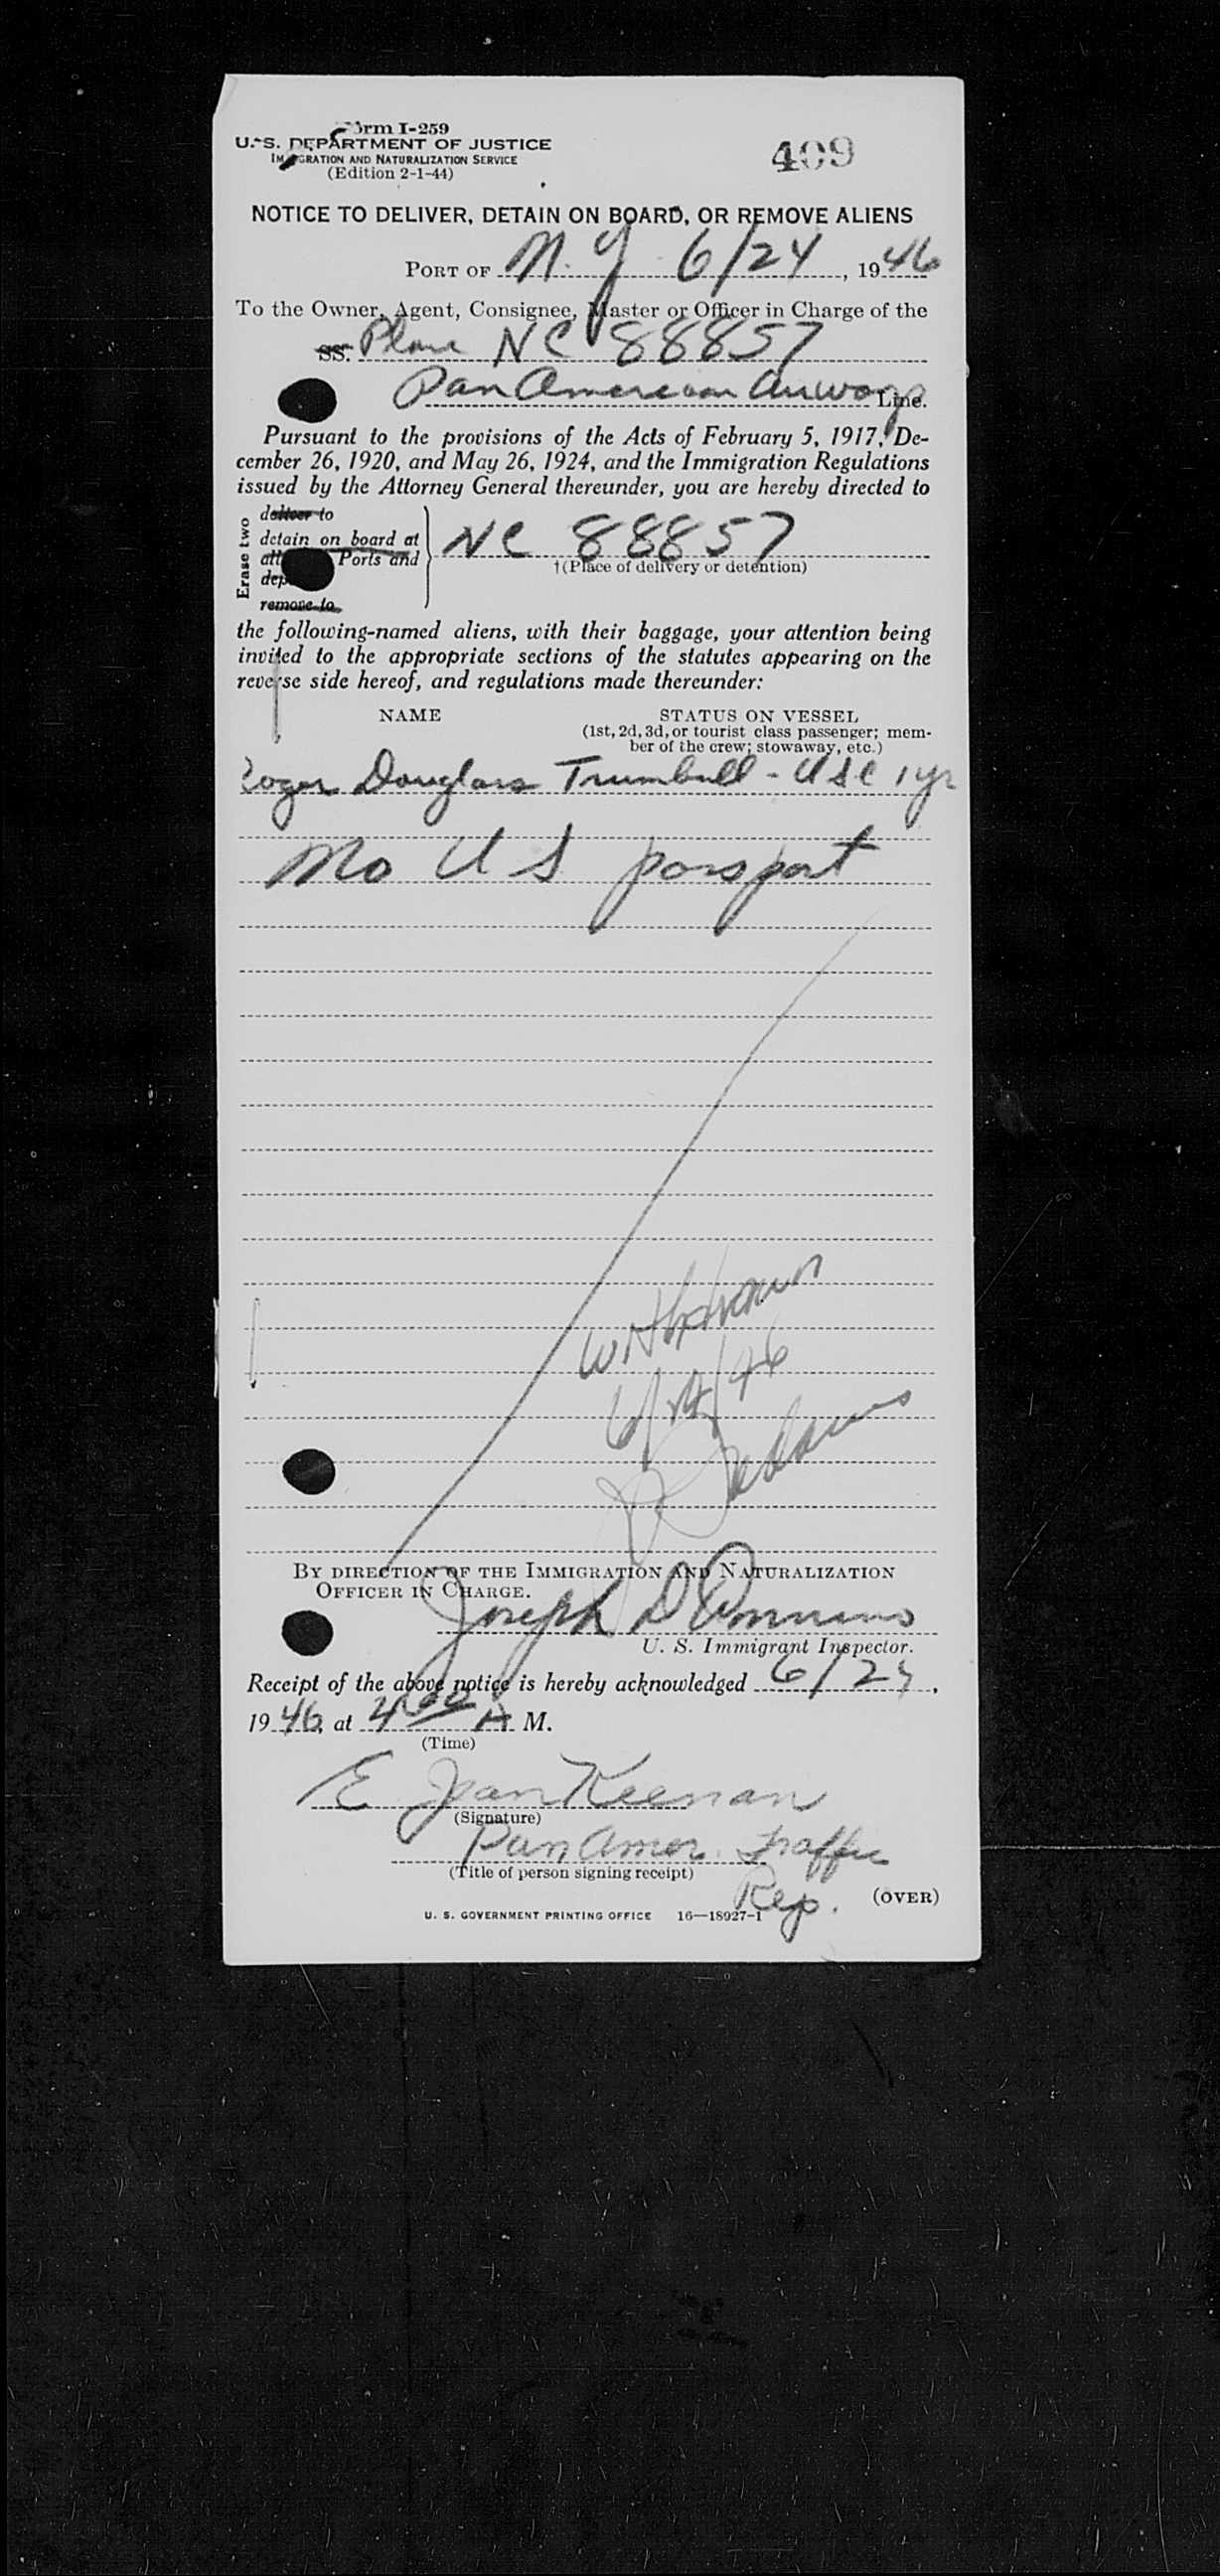 Form I-259
U. S. DEPARTMENT OF JUSTICE
IMMIGRATION AND NATURALIZATION SERVICE
(Edition 2-1-44)
409
NOTICE TO DELIVER, DETAIN ON BOARD, OR REMOVE ALIENS
PORT OF N. Y 6/24, 1946
To the Owner, Agent, Consignee, Master or Officer in Charge of the
SS. Plane NC 88857
Pan American Airways Line.
Pursuant to the provisions of the Acts of February 5, 1917, De-
cember 26, 1920, and May 26, 1924, and the Immigration Regulations
issued by the Attorney General thereunder, you are hereby directed to
Erase two
deliver to
detain on board at
all Ports and
remove to
NC 88857
†(Place of delivery or detention)
the following-named aliens, with their baggage, your attention being
invited to the appropriate sections of the statutes appearing on the
reverse side hereof, and regulations made thereunder:
NAME
STATUS ON VESSEL
(1st, 2d, 3d, or tourist class passenger; mem-
ber of the crew; stowaway, etc.)
Roger Douglass Trumbull - USC 1 yr
No US passport
Withdrawn
6/24/46
BY DIRECTION OF THE IMMIGRATION AND NATURALIZATION
OFFICER IN CHARGE.
Joseph D
U. S. Immigrant Inspector.
Receipt of the above notice is hereby acknowledged 6/24,
1946, at 4 00 A M.
(Time)
E. Jean Keenan
(Signature)
Pan Amer. Traffic
(Title of person signing receipt)
Rep.
(OVER)
U. S. GOVERNMENT PRINTING OFFICE 16—18927-1